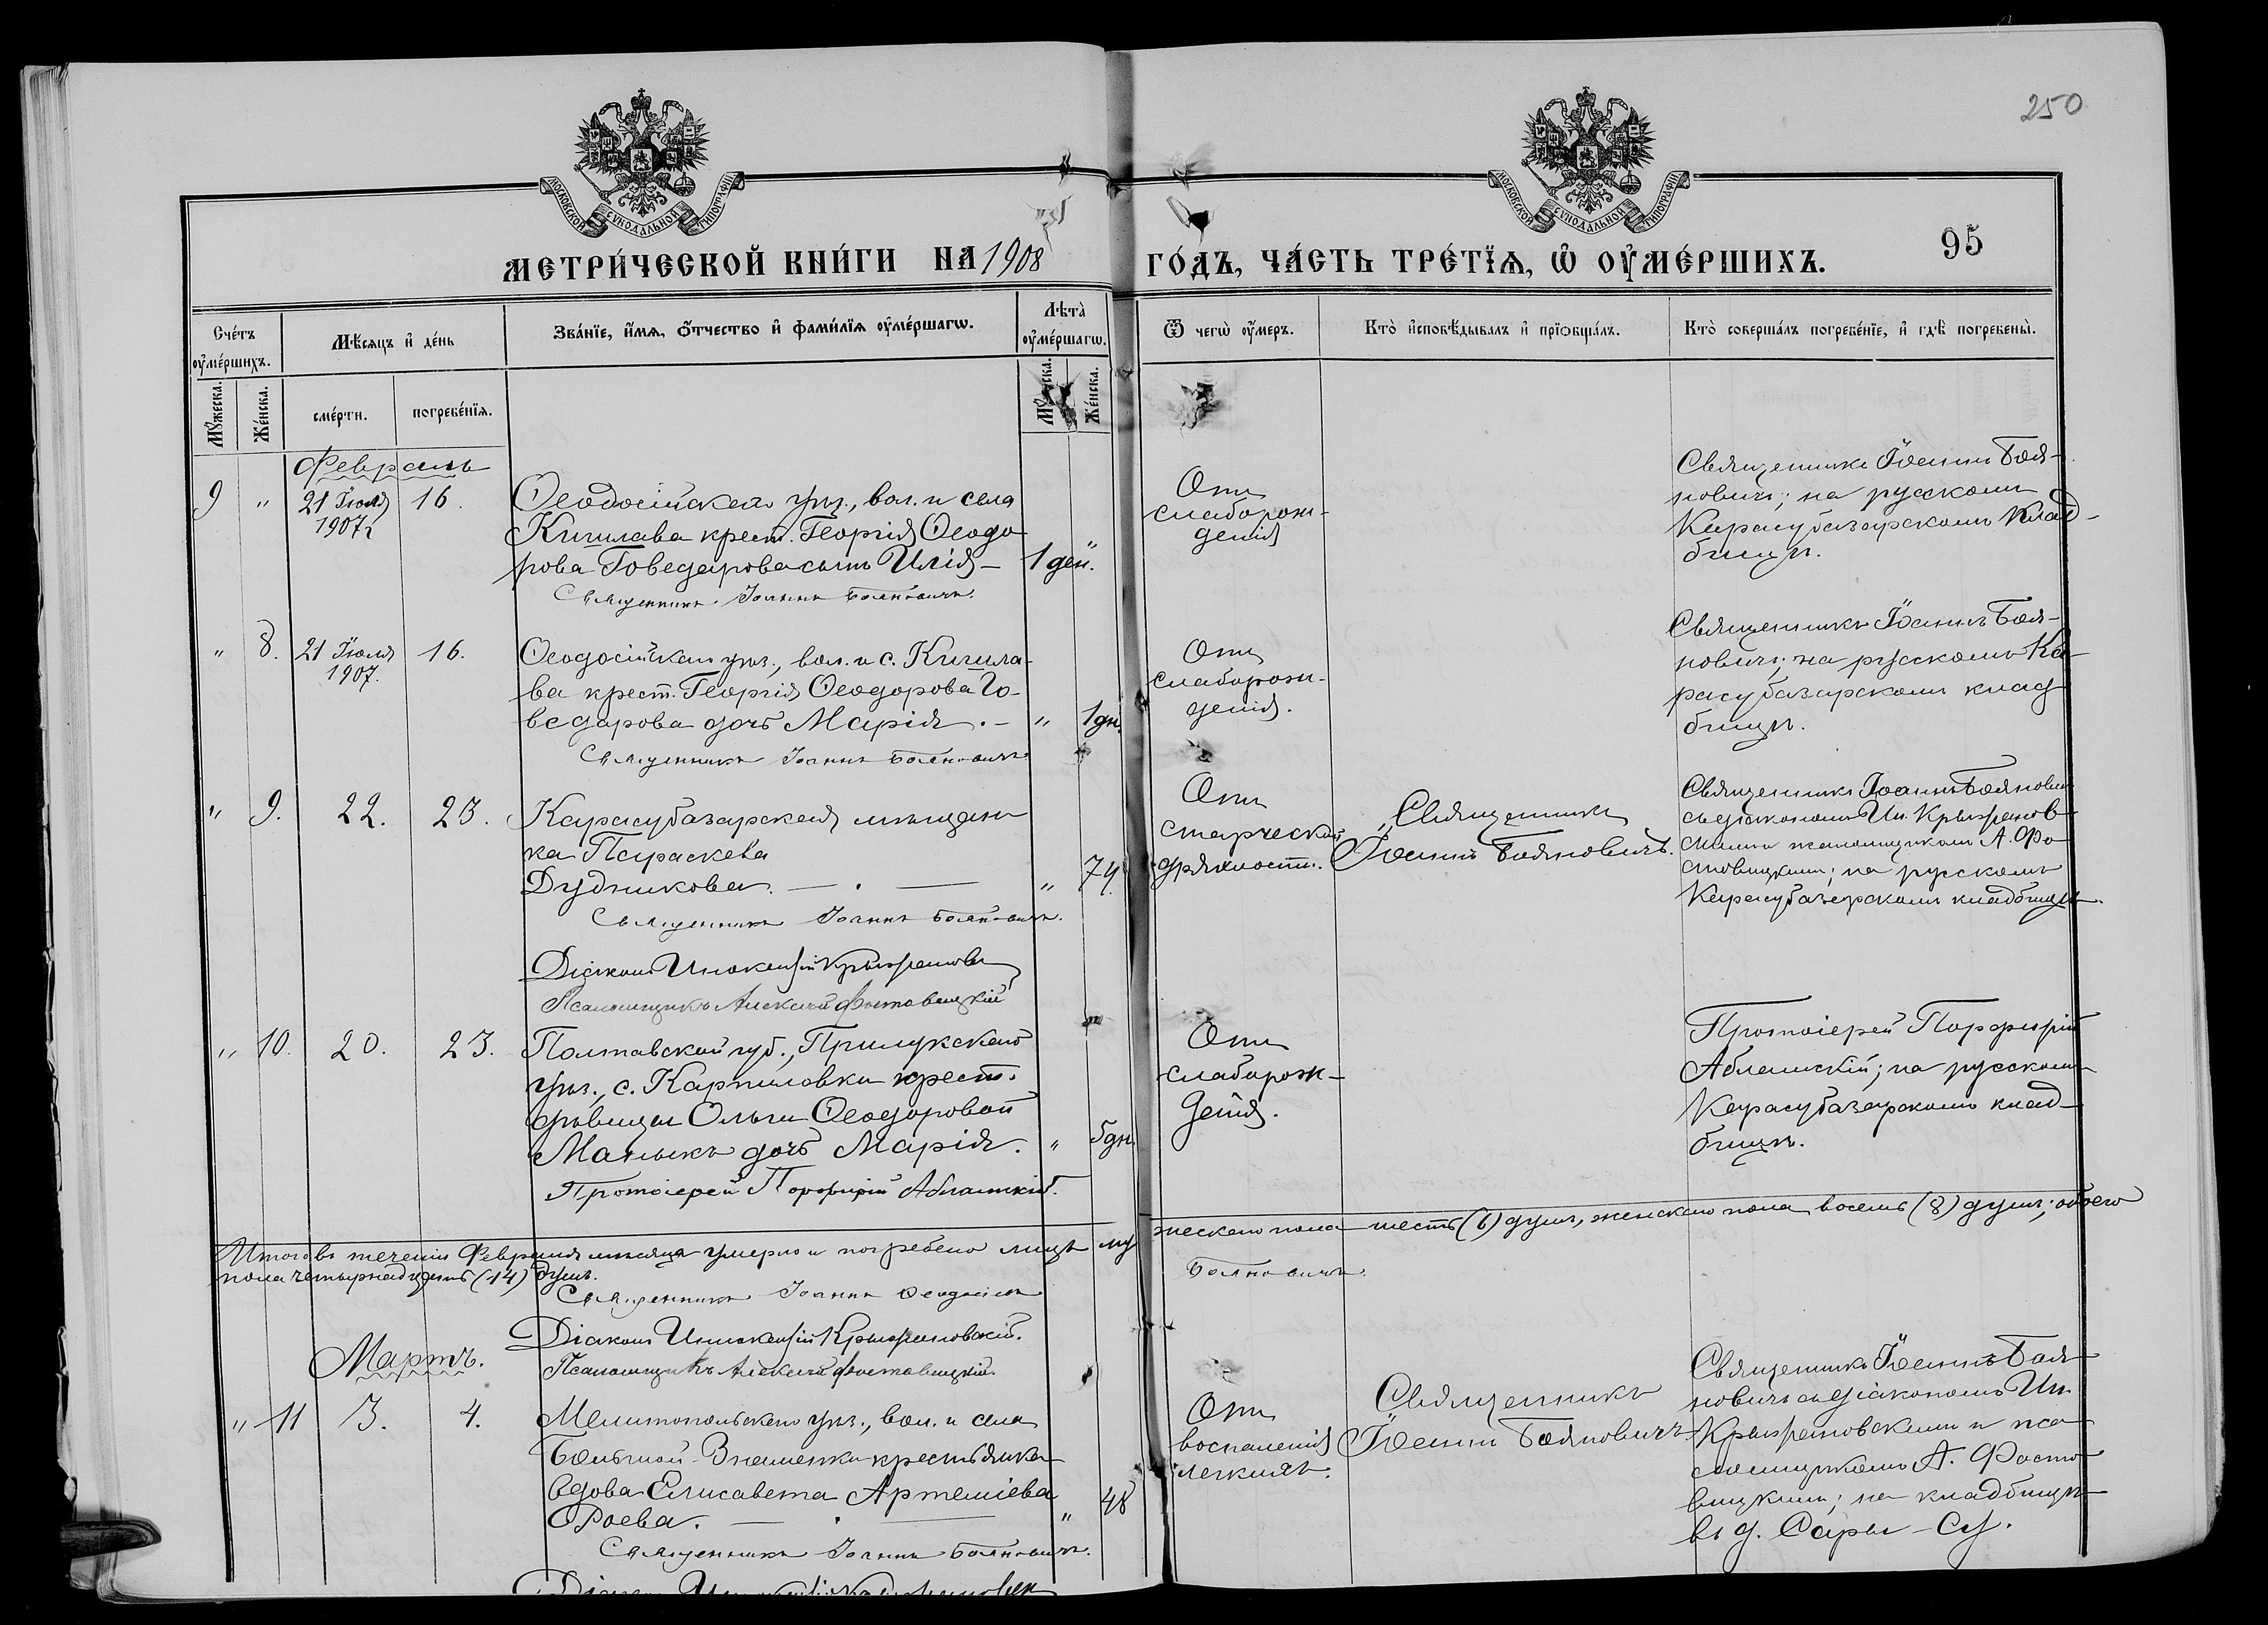 250
МОСКОВСКОЙ СѴНОДАЛЬНОЙ ТИПОГРАФІИ
МОСКОВСКОЙ СѴНОДАЛЬНОЙ ТИПОГРАФІИ
МЕТРИ́ЧЕСКОЙ КНИ́ГИ НА 1908 ГО́ДЪ, ЧА́СТЬ ТРЕ́ТЇѦ, Ѡ҆ ОУ҆МЕ́РШИХЪ.
95
Сче́тъ оу҆ме́ршихъ.
Мꙋжеска.
Же́нска.
Мѣ́сѧцъ и҆ де́нь
сме́рти.
погребе́нїѧ.
Зва́нїе, и҆́мѧ, ѻ҆́тчество и҆ фами́лїѧ оу҆ме́ршагѡ.
Лѣта̀ оу҆ме́ршагѡ.
Мꙋжеска.
Же́нска.
Ѿ чегѡ̀ оу҆́меръ.
Кто̀ и҆сповѣ́дывалъ и҆ прїѡбща́лъ.
Кто̀ соверша́лъ погребе́нїе, и҆ гдѣ̀ погребены̀.
Февраль
9 " 21 Іюля 1907 г. 16.
Ѳеодосійскаго уѣз., вол. и села
Кишлава крест. Георгія Ѳеодо-
рова Говедарова сынъ Илія –
1 ден.
Священникъ Іоаннъ Бояновичъ.
Отъ
слаборож-
денія
Священникъ Іоаннъ Боя-
новичъ; на русскомъ
Карасубазарскомъ клад-
бищѣ.
" 8. 21 Іюля 1907. 16.
Ѳеодосійскаго уѣз., вол. и с. Кишла-
ва крест. Георгія Ѳеодорова Го-
ведарова дочь Марія. –
" 1 дн.
Священникъ Іоаннъ Бояновичъ.
Отъ
слаборож-
денія.
Священникъ Іоаннъ Боя-
новичъ; на русскомъ Ка-
расубазарскомъ клад
бищѣ.
" 9. 22. 23.
Карасубазарская мѣщан
ка Параскева
Дудникова. — . —
" 74.
Священникъ Іоаннъ Бояновичъ.
Діаконъ Инокентій
Псаломщикъ Алексій Фостовицкій
Отъ
старческой
дряхлости.
Священникъ
Іоаннъ Бояновичъ.
Священникъ Іоаннъ Боянович
съ діакономъ Ин.
А. Фо
стовицкимъ; на русскомъ
Карасубазарскомъ кладбищѣ.
" 10. 20. 23.
Полтавской губ., Прилукскаго
уѣз., с. Карпиловки крест.
дѣвицы Ольги Ѳеодоровой
дочь Марія.
" 5 дн.
Протоіерей Порфирій
Отъ
слаборож-
денія.
Протоіерей Порфирій
на русскомъ
Карасубазарскомъ клад-
бищѣ.
Итого въ теченіи Февраля мѣсяца умерло и погребено лицъ му жескаго пола шесть (6) душъ, женскаго пола восемь (8) душъ; обоего
пола четырнадцать (14) душъ.
Священникъ Іоаннъ Ѳеодосіевъ Бояновичъ.
Діаконъ Инокентій
Псаломщикъ Алексій Фостовицкій.
Мартъ.
" 11 3. 4.
Мелитопольскаго уѣз., вол. и села
Большой-Знаменки крестьянка
вдова Елисавета Артеміева
Раева. — . —
" 48
Священникъ Іоаннъ Бояновичъ.
Отъ
воспаленія
легкихъ.
Священникъ
Іоаннъ Бояновичъ
Священникъ Іоаннъ Боя
новичъ съ діакономъ Ин.
и пса
ломщикомъ А. Фосто
вицкимъ; на кладбищѣ
въ д. Сары-Су.